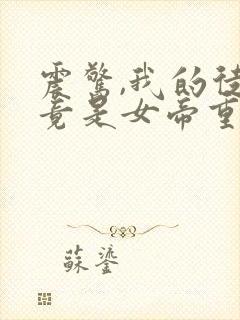 震驚,我的徒
竟是女帝重
蘇鎏